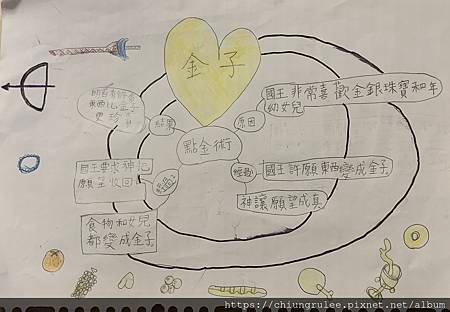 金子
點金術
原因
國王非常喜歡金銀珠寶和年
幼女兒
經過
國王許願東西變成金子
神讓願望成真
食物和女兒
都變成金子
國王要求神把
願望收回
結果
東西比金子
更珍貴
https://chiungrulee.pixnet.net/album